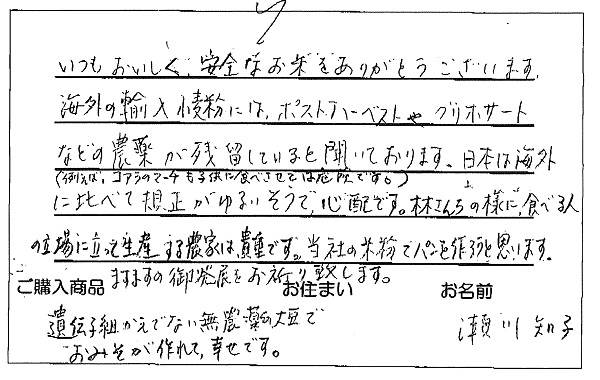 いつもおいしく、安全なお米をありがとうございます。
海外の輸入小麦粉には、ポストハーベストや グリホサート
などの農薬が残留していると聞いております。日本は海外
(例えば、コアラのマーチも子供に食べさせては危険です。)
に比べて規正がゆるいそうで、心配です。林さんちの様に食べる人
の立場に立って生産する農家は貴重です。当社の米粉でパンを作ろうと思います。
ますますの御発展をお祈り致します。
ご購入商品 お住まい お名前
遺伝子組かえでない無農薬の大豆で
おみそが作れて、幸せです。
瀬川 知子